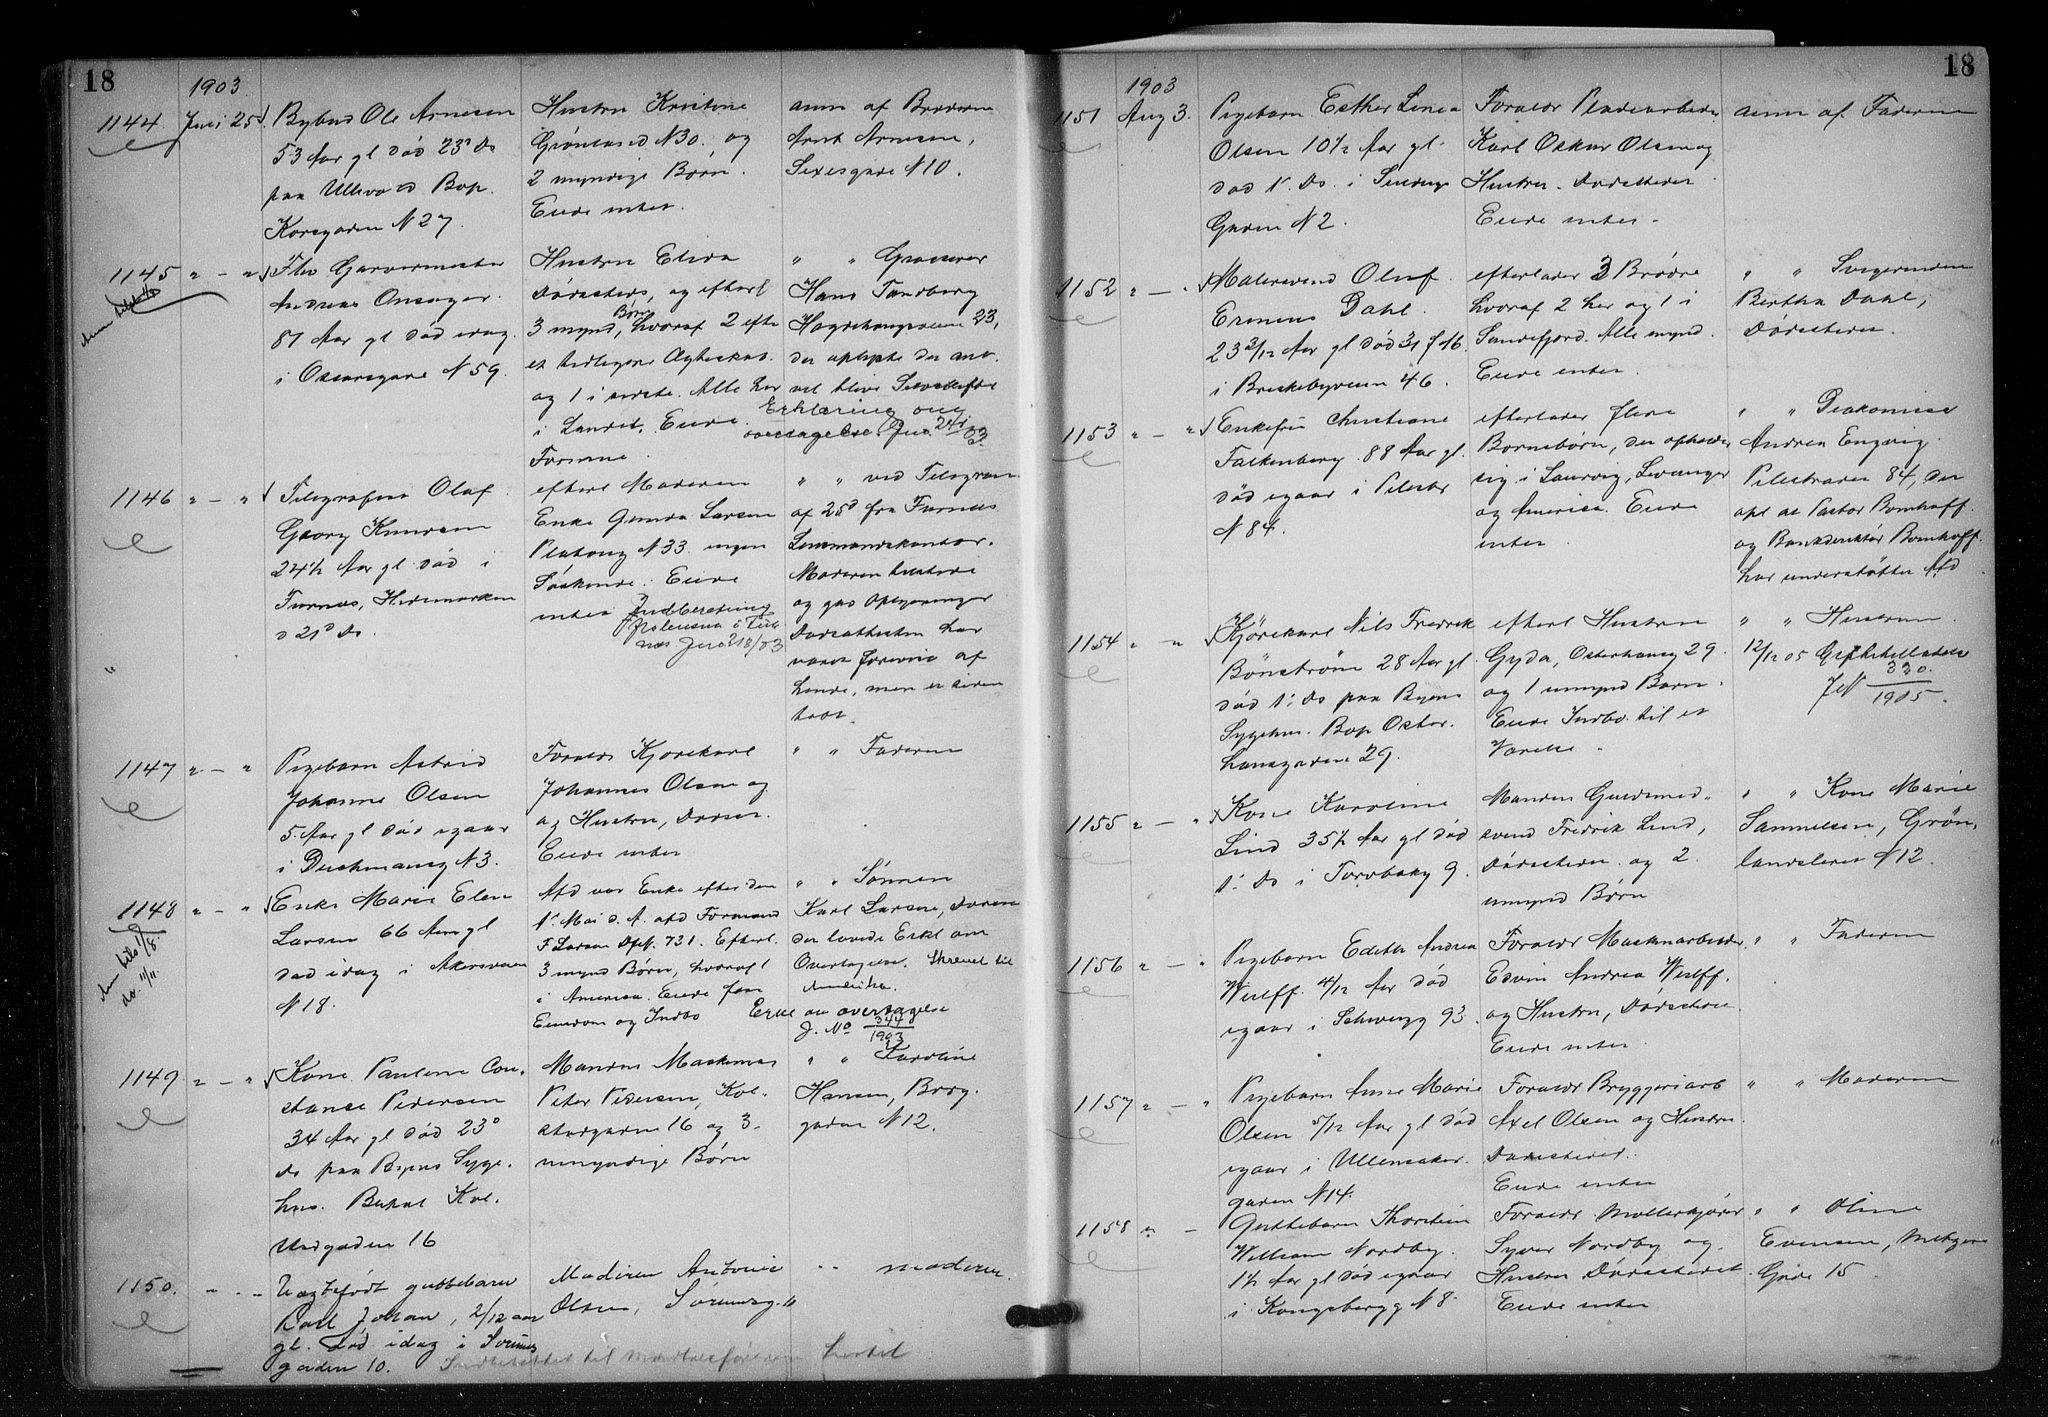 18
1903
1144 Juli 25. Bybud Ole Arnesen
53 Aar gl død 23' ds
paa Ullevold Bop.
Korsgaden N 27
Hustru Kristine
Grönland N 30. og
2 myndige Børn.
Eiede intet.
anm af Broderen
Arnt Arnesen,
Sexesgade N 10.
1145 " - " Garvermester
Andreas Onsager.
87 Aar gl død idag
i Oscarsgade N 59.
Hustru Elida
Dødsstedet, og efterl
3 mynd. Børn, hvoraf 2 efter
et tidligere Ægteskab
og 1 i sidste. Alle her
i Landet. Eiede
Formue.
" " Grosserer
Hans Tandberg
Hægdehaugsveien 23,
der oplyste der ant.
vil blive Selvskifte
Erklæring om
overtagelse. Jno. 241/03.
1146 " - " Telegrafist Olaf
Georg Knudsen
24 1/2 Aar gl død i
Furnes, Hedemarken
d 21' ds.
efterl Moderen
Enke Gunda Larsen
Platoug N 33. ingen
Søskende. Eiede
intet
Indberetning
fra Lensm i Fur
nes Jno 218/03
" " ved Telegram
af 25' fra Furnes
Lensmandskontor.
Moderen tilstede
og gav Oplysninger
Dødsattesten har
været forevist af
hende, men er siden
tabt.
1147 " - " Pigebarn Astrid
Johanne Olsen
5 Aar gl død igaar
i Deichmansg N 3.
Forældr Kjørekarl
Johannes Olsen og
og Hustru, Dødsst.
Eiede intet
" " Faderen
1148 " - " Enke Marie Elen
Larsen 66 Aar gl
død idag i Akersveien
N 18.
Afd var Enke efter den
1' Mai d. A. afd Formand
F Larsen Dfpt. 731. Efterl.
3 mynd Børn, hvoraf 1
i Amerika. Eiede fast
Eiendom og Indbo
" " Sønnen
Karl Larsen, Dødsst
der lovede Erkl om
Overtagelse. Skrevet til
Amerika.
Erkl om overtagelse
J. No 344/1903
1149 " - " Kone Pauline Con-
stance Pedersen
34 Aar gl død 23'
ds paa Byens Syge-
hus. Bopæl Kol-
stadgaden 16
Manden Maskinass
Peter Pedersen, Kol-
stadgaden 16 og 3
umyndige Børn
" " Karoline
Hansen, Borg-
gaden N 12.
1150. " - " Uægtefødt guttebarn
Carl Johan, 2/12 aar
gl. død idag i Sørums
gaden 10.
Moderen Antonie
Olsen, Sørumsg. "
" " moderen.
18
1903
1151 Aug 3. Pigebarn Esther Linea
Olsen 10 1/2 Aar gl.
død 1' ds. i
Gaden N 2.
Forældr Pladearbeider
Karl Oskar Olsen og
Hustru. Dødsstedet
Eiede intet.
anm af Faderen
1152 " - " Malersvend Oluf
Dahl.
23 3/12 Aar gl død 31 f M.
i Briskebyveien 46.
efterlader 3 Brødre
hvoraf 2 her og 1 i
Sandefjord. Alle mynd.
Eiede intet.
" " Svigerinden
Bertha Dahl,
Dødsstedet.
1153 " - " Enkefru Christiane
Falkenberg 88 Aar gl.
død igaar i Pilestr
N 84.
efterlader flere
Børnebørn, der opholder
sig i Laurvig, Levanger
og Amerika. Eiede
intet.
" " Diakonisse
Andrea Engvig.
Pilestrædet 84, der
opl at Pastor Bomhoff
og Bankdirektør Bomhoff
har understøttet Afd
1154 " - " Kjørekarl Nils Fredrik
Bönström 28 Aar gl.
død 1' ds paa Byens
Sygehus. Bop Oster-
hausgaden 29.
efterl Hustru
Gyda, Osterhausg 29.
og 1 umynd Barn.
Eiede Indbo til et
Værelse.
" " Hustruen.
12/12 05 Giftetilladelse
JN 330/1905.
1155 " - " Kone Karoline
Lind 35 1/2 Aar gl død
1' ds i Torvbakg 9.
Manden Guldsmed-
svend Fredrik Lind,
Dødsstedet og 2
umynd Børn
" " Kone Marie
Samuelsen, Grøn-
landsleret N 12.
1156 " - " Pigebarn Edith Andrea
Wulff 4/12 Aar død
igaar i Schweigg 93.
Forældr Maskinarbeider
Edvin Andrea Wulff.
og Hustru, Dødsstedet.
Eiede intet.
" " Faderen
1157 " - " Pigebarn Anne Marie
Olsen 5/12 Aar gl død
igaar i Ullensaker-
gaden N 14.
Forældr Bryggeriarb
Axel Olsen og Hustru
Dødsstedet.
Eiede intet
" " Moderen
1158 " - Guttebarn Thorstein
William Nordby.
1 1/2 Aar gl død igaar
i Kongsbergg N 8.
Forældr Møllerkjører
Syver Nordby og
Hustru Dødsstedet.
Eiede intet
" " Oline
Evensen,
Gade 15